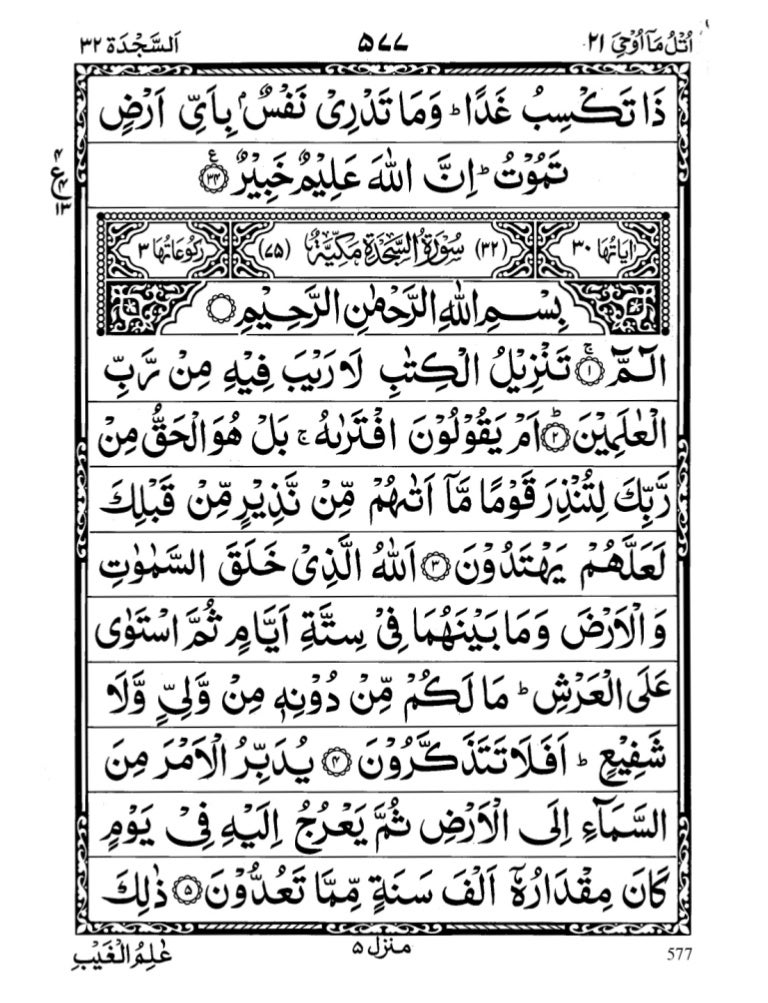 اُتْلُ مَاۤ اُوْحِیَ ۲۱ ۵۷۷ اَلسَّجْدَة ۳۲
ذَا تَكْسِبُ غَدًا ؕ وَمَا تَدْرِیْ نَفْسٌۢ بِاَیِّ اَرْضٍ
تَمُوْتُ ؕ اِنَّ اللّٰهَ عَلِیْمٌ خَبِیْرٌ ۟۠ ﴿۳۴﴾
ع ۴ ۴ ۱۳
اٰیَاتُهَا ۳۰ (۳۲) سُوْرَةُ السَّجْدَةِ مَكِّیَّةٌ (۷۵) رُكُوْعَاتُهَا ۳
بِسْمِ اللّٰهِ الرَّحْمٰنِ الرَّحِیْمِ ۝
الٓمّٓ ۚ ﴿۱﴾ تَنْزِیْلُ الْكِتٰبِ لَا رَیْبَ فِیْهِ مِنْ رَّبِّ
الْعٰلَمِیْنَ ؕ ﴿۲﴾ اَمْ یَقُوْلُوْنَ افْتَرٰىهُ ۚ بَلْ هُوَ الْحَقُّ مِنْ
رَّبِّكَ لِتُنْذِرَ قَوْمًا مَّاۤ اَتٰىهُمْ مِّنْ نَّذِیْرٍ مِّنْ قَبْلِكَ
لَعَلَّهُمْ یَهْتَدُوْنَ ﴿۳﴾ اَللّٰهُ الَّذِیْ خَلَقَ السَّمٰوٰتِ
وَالْاَرْضَ وَمَا بَیْنَهُمَا فِیْ سِتَّةِ اَیَّامٍ ثُمَّ اسْتَوٰی
عَلَی الْعَرْشِ ؕ مَا لَكُمْ مِّنْ دُوْنِهٖ مِنْ وَّلِیٍّ وَّلَا
شَفِیْعٍ ؕ اَفَلَا تَتَذَكَّرُوْنَ ﴿۴﴾ یُدَبِّرُ الْاَمْرَ مِنَ
السَّمَآءِ اِلَی الْاَرْضِ ثُمَّ یَعْرُجُ اِلَیْهِ فِیْ یَوْمٍ
كَانَ مِقْدَارُهٗۤ اَلْفَ سَنَةٍ مِّمَّا تَعُدُّوْنَ ﴿۵﴾ ذٰلِكَ
577 منزل ۵ عٰلِمُ الْغَیْبِ